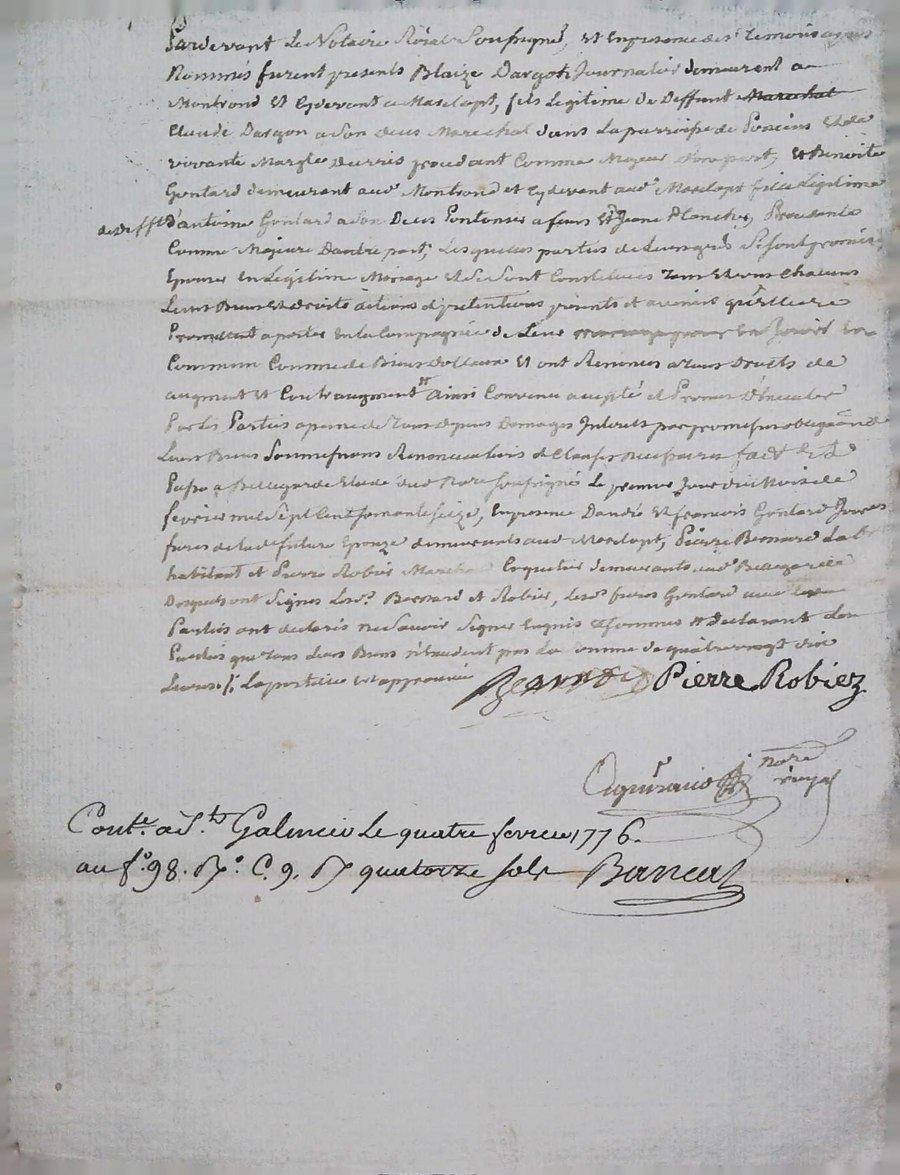 Pardevant Le Notaire Röial Soussigné, et En presence des temoins apres
Nommés furent presents Blaize Dargot Journalier demeurant a
Montrond Et Cydevant a Marclopt, fils Legitime de Deffunt Marechal
Claude Dargon a son deces Marechal dans La parroisse de Poncins Et de
vivante Margte procedant Comme Majeur d'une part, Et Benoite
Gontard demeurant aud. Montrond et Cydevant aud. Marclopt fille Legitime
de Defft d'antoine Gontard a son Deces Pontonier a feurs Et Jeanne Planchet, Procedante
Comme Majeure Dautre part, Lesquelles parties de leurs grés Se sont promis
Epouser En Legitime Mariage Et Se Sont Constitués tous Et uns Chacuns
Leurs Biens Et Droits actions et pretentions presents et avenirs qu'Elles
Promettent aporter En la Compagnie de Leur mariage pour En Jouir En
Commun Comme de Biens Dottaux Et ont Renoncés a tous Droits de
augment Et Contraugment Ainsi Convenu accepté et Promis D'Executer
Par les Parties a peine de Tous depens Domages Interets par promesse obligaon de
Leurs Biens Soumissions Renonciations et Clauses necessaires fait et
Passé a Bellegarde Etude dud. Nore soussigné Le premier Jour du Mois de
fevrier mil Sept Cent soixante seize, En presence Dandré Et françois Gontard
freres de lade future Epouze demeurants aud. Marclopt, Pierre Bernard
habitant et Pierre Robier Marchand Coquetier demeurants aud. Bellegarde
Desquels ont Signés Lesd. Bernard et Robier, lesd. freres Gontard avec les
Parties ont declarés ne Savoir Signer Enquis et sommés et declarant
Parties que tous leurs Biens n'Excedent pas La Somme de quatre vingt dix
Livres ./. La postille est approuvée
Bernard Pierre Robiez
nore
royal
Conté. à St. Galmier Le quatre fevrier 1776.
au f°. 98. R°. C. 9. R quatorze sols Bancal